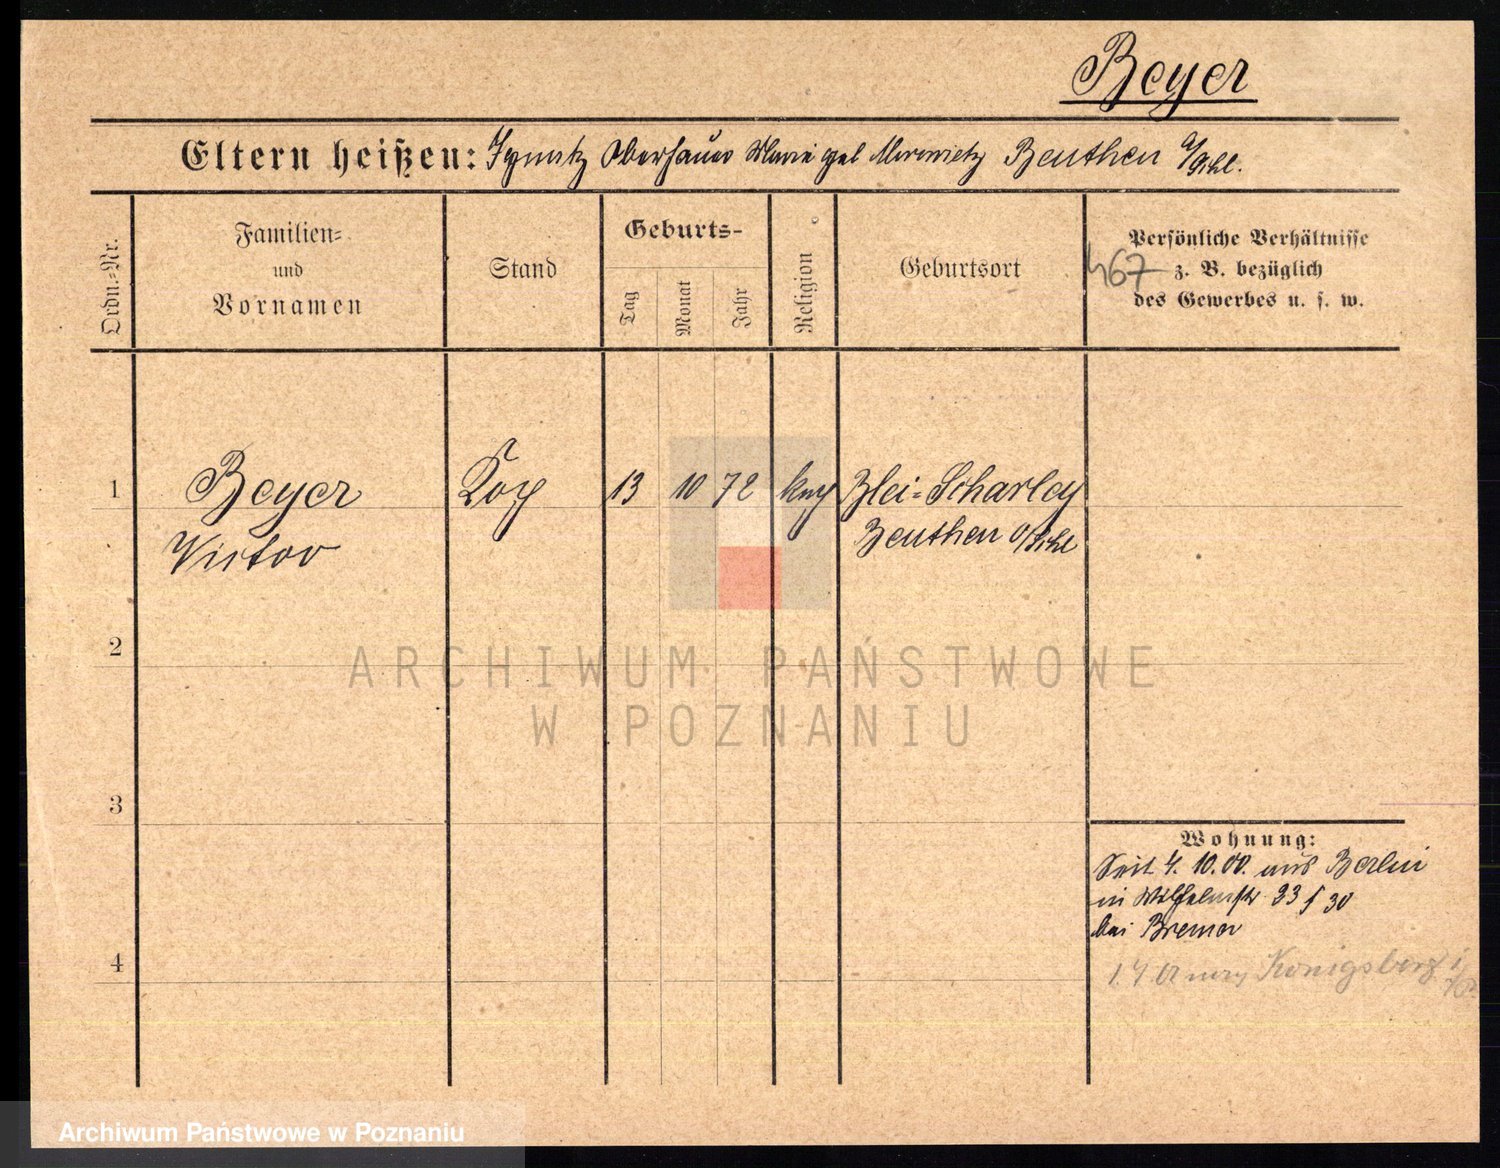 Beyer
Eltern heißen: Ignatz Oberhauer Marie geb Beuthen O/Schl.
Ordn.-Nr.
Familien-
und
Vornamen
Stand
Geburts-
Tag
Monat
Jahr
Religion
Geburtsort
467
Persönliche Verhältnisse
z. B. bezüglich
des Gewerbes u. s. w.
1 Beyer 13 10 72 Blei-Scharley
Victor Beuthen O/Schl
2
ARCHIWUM PAŃSTWOWE
W POZNANIU
3
Wohnung:
Seit 4. 10. 00. aus Berlin
in Wilhelmstr 23 30
bei Bremer
4
1. 4 01 nach Königsberg i/
Archiwum Państwowe w Poznaniu